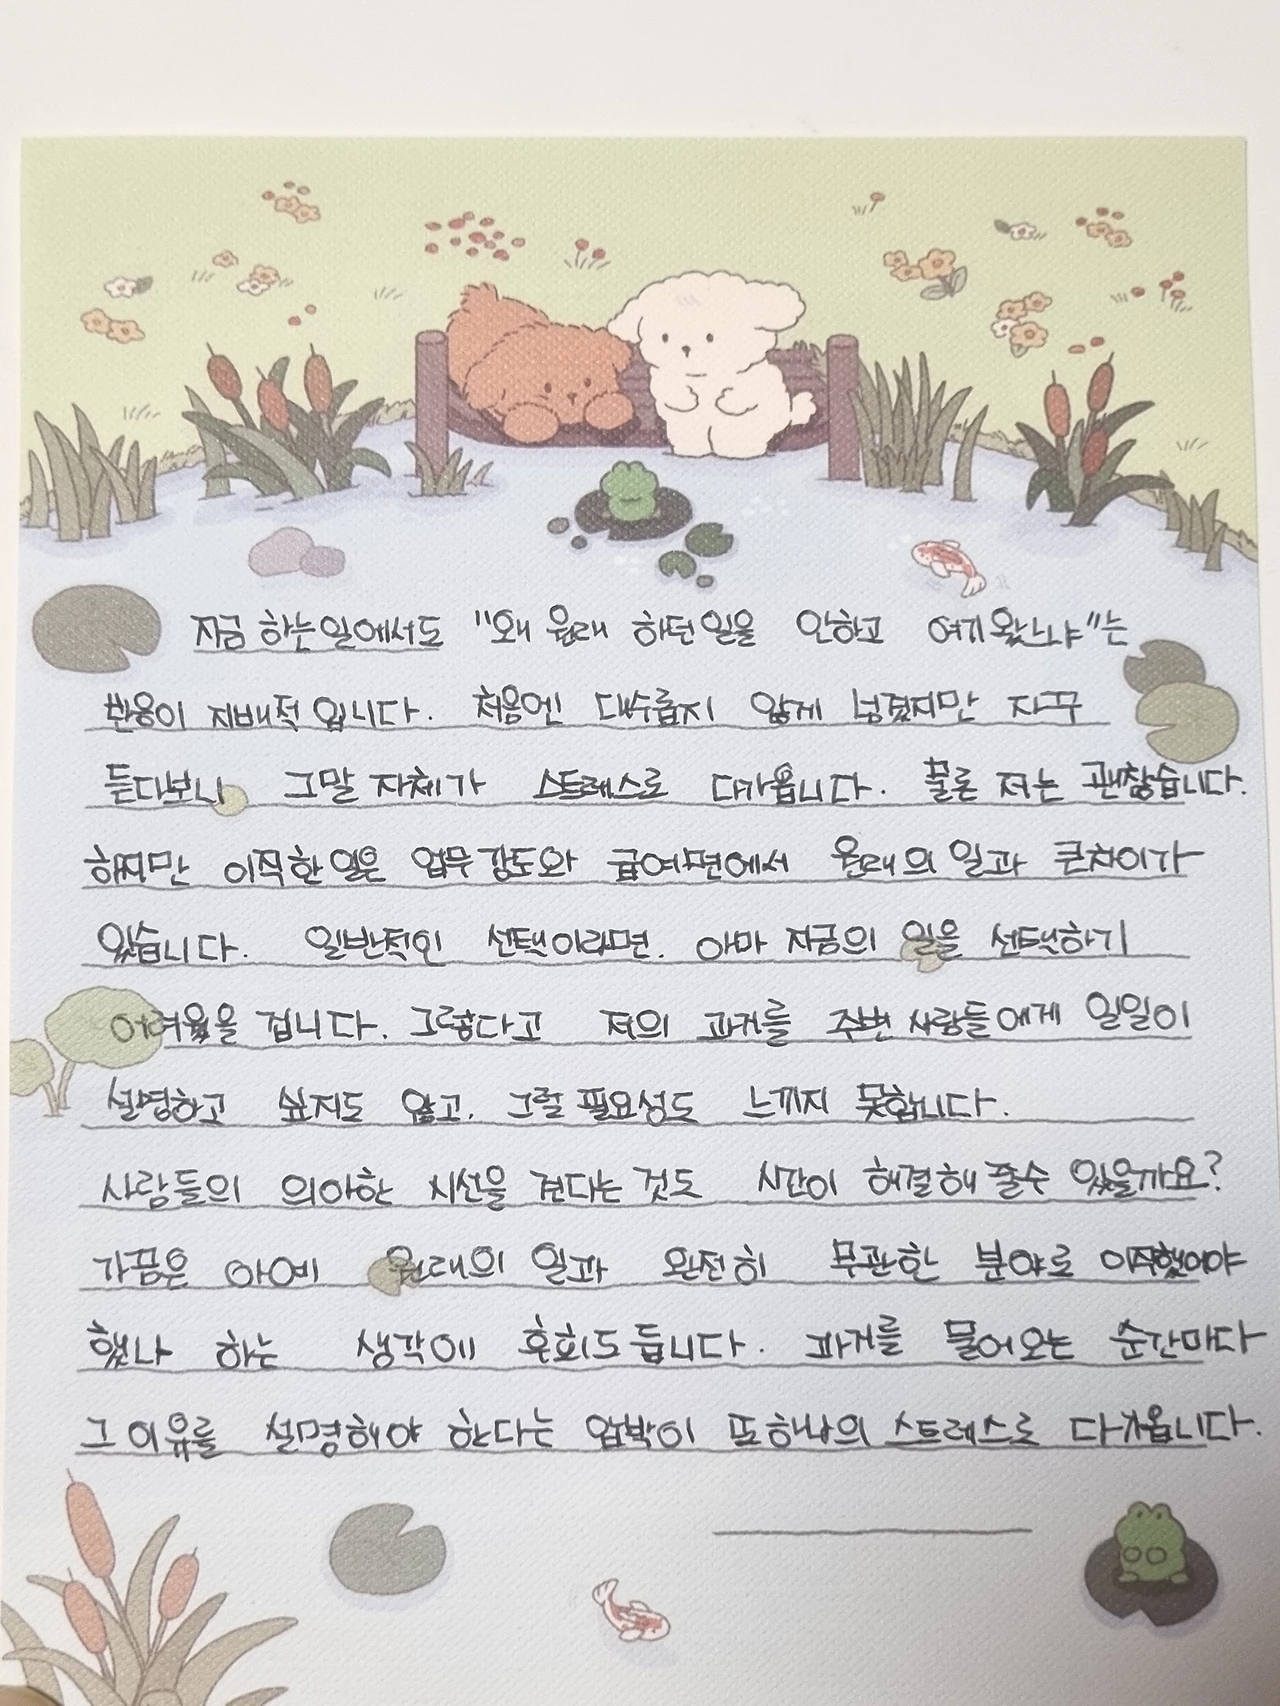 지금 하는일에서도 "왜 원래 하던일을 안하고 여기왔느냐"는
반응이 지배적입니다. 처음엔 대수롭지 않게 넘겼지만 자꾸
듣다보니 그말 자체가 스트레스로 다가옵니다. 물론 저는 괜찮습니다.
하지만 이직한 일은 업무 강도와 급여면에서 원래의 일과 큰차이가
있습니다. 일반적인 선택이라면, 아마 지금의 일을 선택하기
어려웠을 겁니다. 그렇다고 저의 과거를 주변 사람들에게 일일이
설명하고 싶지도 않고, 그럴 필요성도 느끼지 못합니다.
사람들의 의아한 시선을 견디는 것도 시간이 해결해 줄수 있을까요?
가끔은 아예 원래의 일과 완전히 무관한 분야로 이직했어야
했나 하는 생각에 후회도 듭니다. 과거를 물어오는 순간마다
그 이유를 설명해야 한다는 압박이 또하나의 스트레스로 다가옵니다.